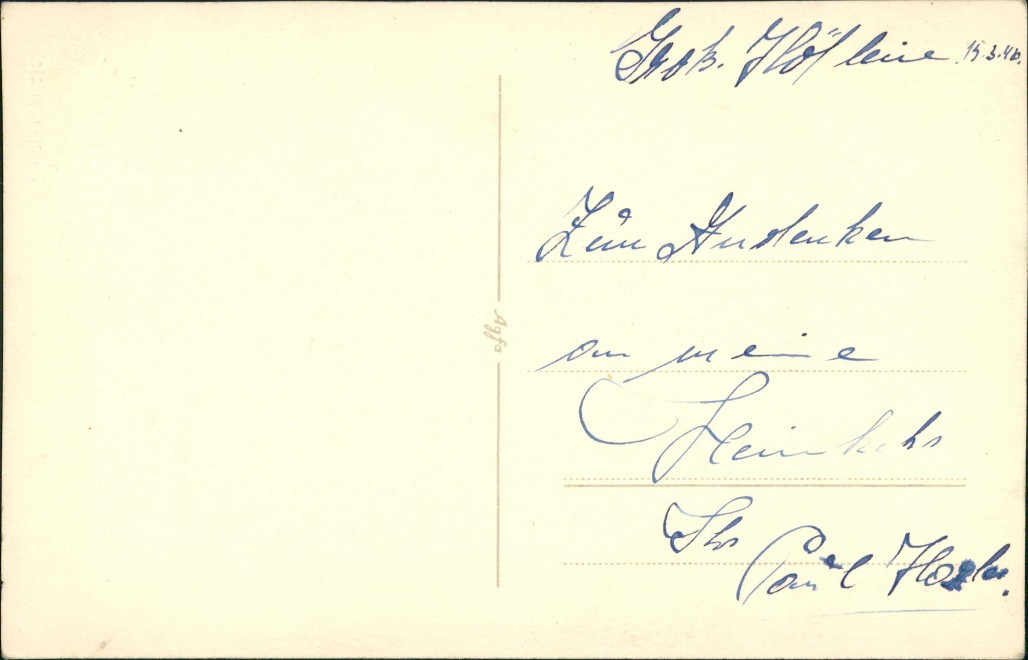 Groß-Höflein 15.3.40.
Zum Andenken
an meine
Heimkehr
Ihr
Paul
Agfa